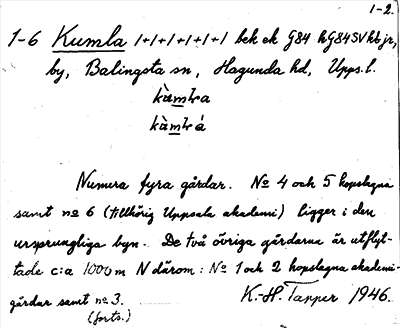 1-2.
1-6 Kumla 1+1+1+1+1+1 bek ek G84 hG84SVht jr,
by, Balingsta sn, Hagunda hd, Upps. l.
kùmla
kùmlá
Numera fyra gårdar. No 4 och 5 hopslagna
samt no 6 (tillhörig Uppsala akademi) ligger i den
ursprungliga byn. De två övriga gårdarna är utflyt-
tade c:a 1000 m N därom: No 1 och 2 hopslagna akademi-
gårdar samt no 3.
(forts.)
K.-H. Tapper 1946.